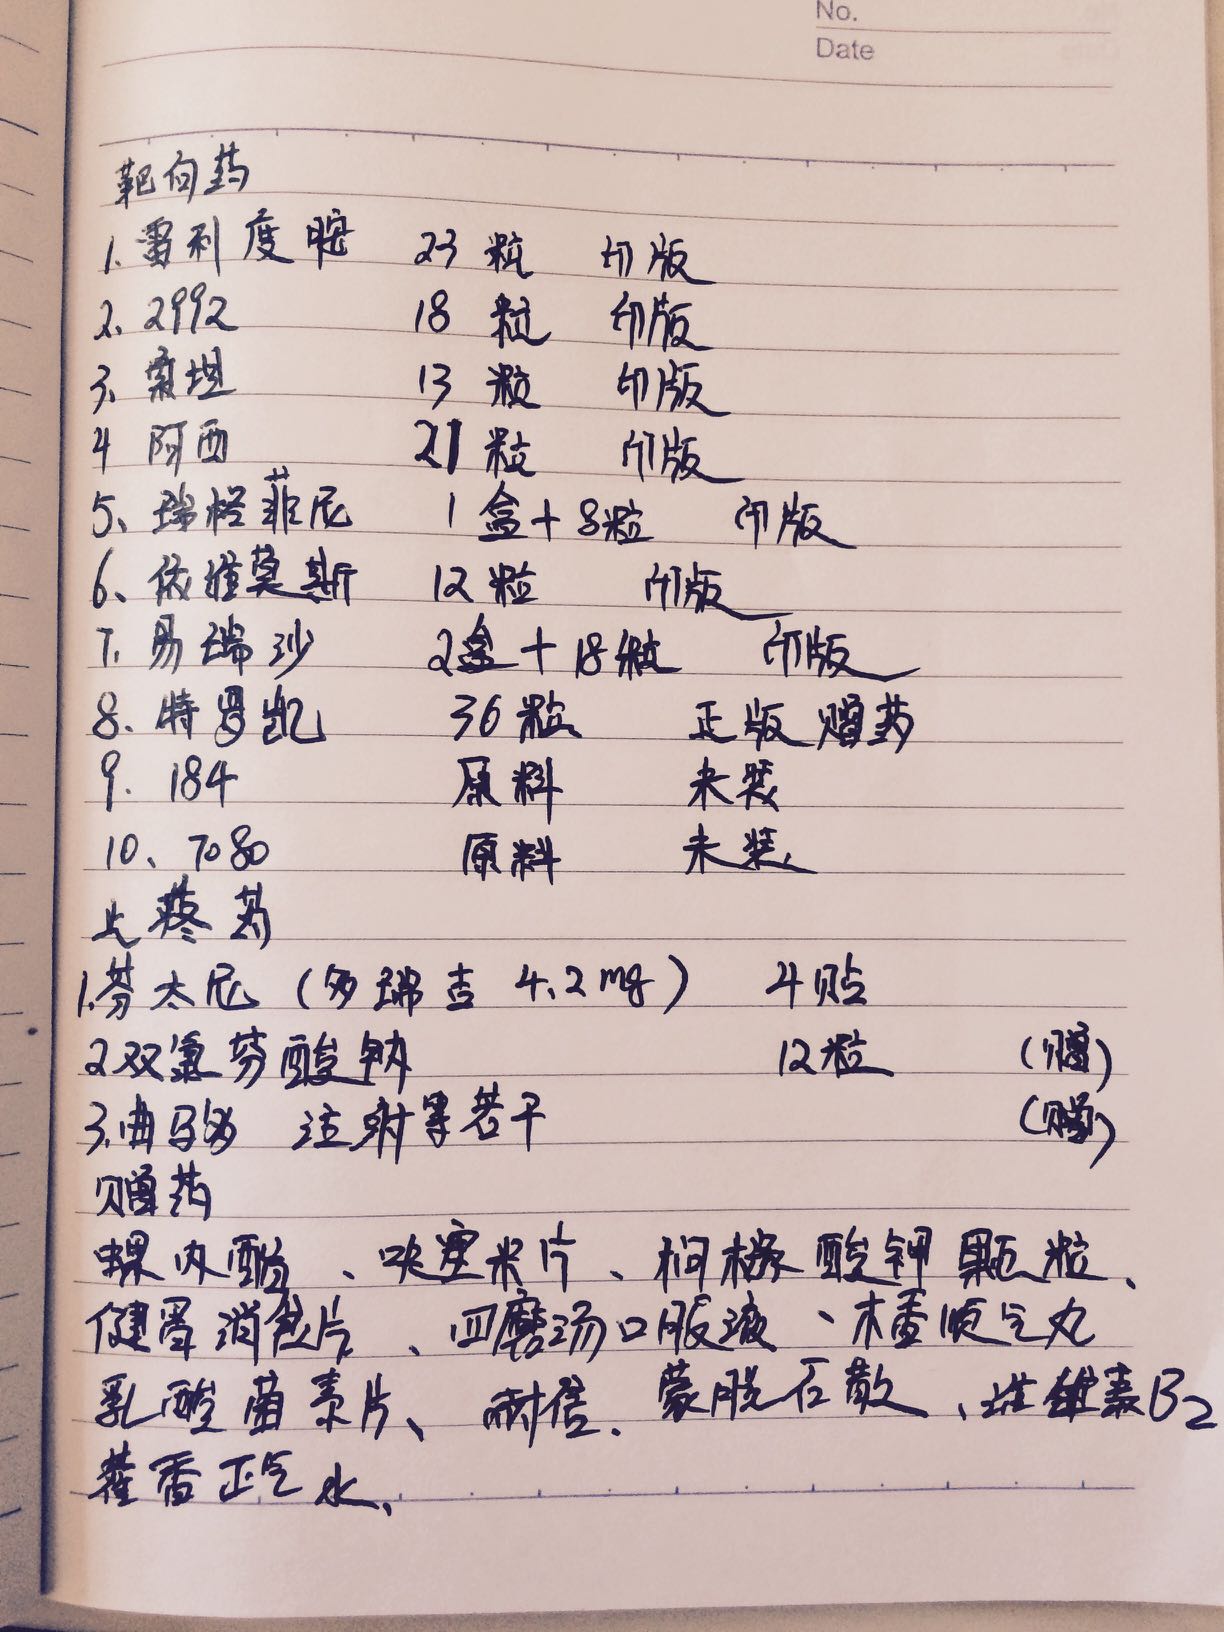 No.
Date
靶向药
1. 雷利度胺 23粒 印版
2、2992 18粒 印版
3、索坦 13粒 印版
4 阿西 21粒 印版
5、瑞格菲尼 1盒+8粒 印版
6、依维莫斯 12粒 印版
7、易瑞沙 2盒+18粒 印版
8、特罗凯 36粒 正版赠药
9. 184 原料 未装
10、7080 原料 未装
止疼药
1.芬太尼(多瑞吉4.2mg) 4贴
2双氯芬酸钠 12粒 (赠)
3.曲马多 注射等若干 (赠)
赠药
螺内酯、呋塞米片、枸橼酸钾颗粒、
健胃消食片、四磨汤口服液、木香顺气丸
乳酸菌素片、耐信、蒙脱石散、维素B2
藿香正气水、